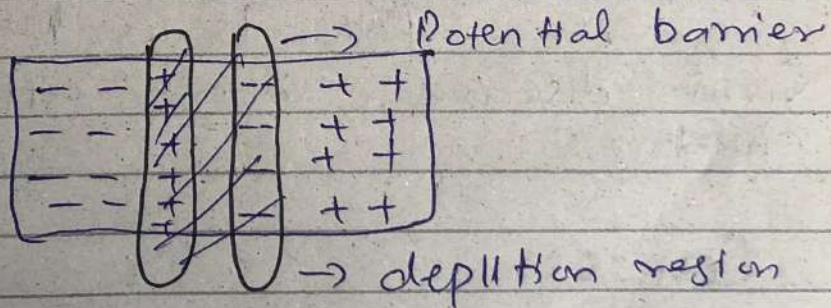 → Potential barrier
- - + - - + +
- - + - - + +
+ + +
- - + - + +
- - + - + +
+
→ deplltion region